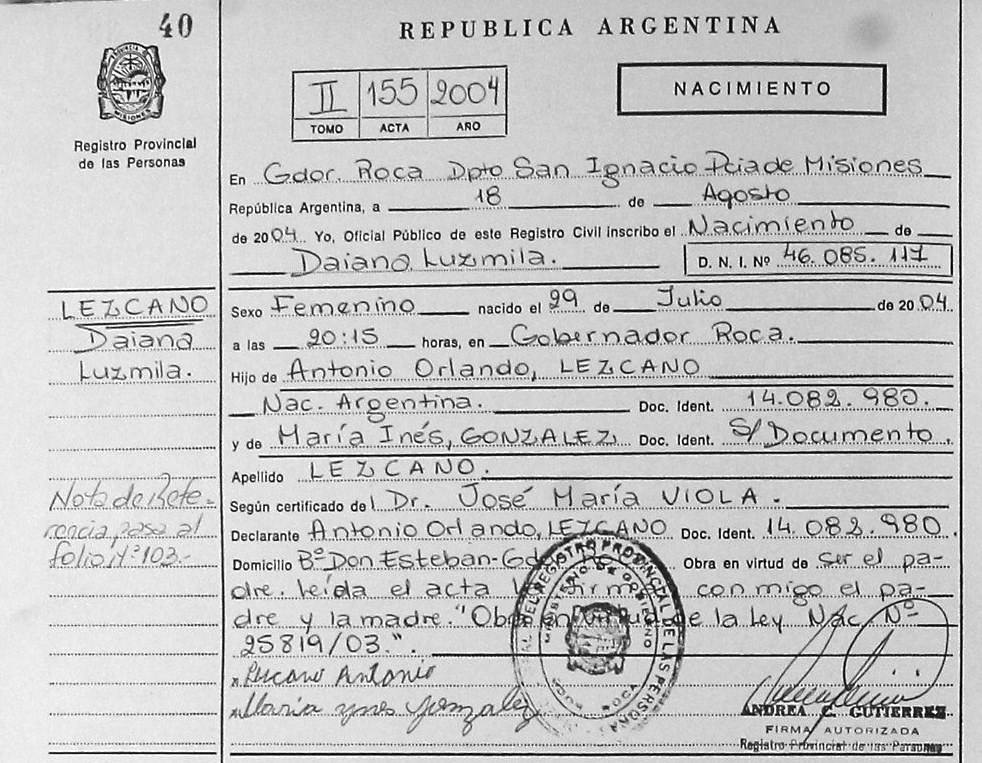 40
REPUBLICA ARGENTINA
PROVINCIA DE
MISIONES
Registro Provincial
de las Personas
II 155 2004
TOMO ACTA AÑO
NACIMIENTO
En Gdor. Roca Dpto San Ignacio Pcia de Misiones
República Argentina, a 18 de Agosto
de 2004 Yo, Oficial Público de este Registro Civil inscribo el Nacimiento de
Daiana Luzmila. D. N. I. Nº 46.085.117
LEZCANO
Daiana
Luzmila.
Sexo Femenino nacido el 29 de Julio de 2004
a las 20:15 horas, en Gobernador Roca.
Hijo de Antonio Orlando, LEZCANO
Nac. Argentina. Doc. Ident. 14.082.980.
y de María Inés, GONZALEZ Doc. Ident. S/Documento.
Apellido LEZCANO.
Según certificado del Dr. José María VIOLA.
Declarante Antonio Orlando, LEZCANO Doc. Ident. 14.082.980.
Domicilio Bº Don Esteban-Gd Obra en virtud de ser el pa-
dre. Leída el acta conmigo el pa-
dre y la madre. "Obra en virtud de la Ley Nac. Nº
25819/03.".
Nota de Refe-
rencia, pasa al
folio Nº 103.-
Lezcano Antonio
Maria Ynes Gonzalez
REGISTRO PROVINCIAL DE LAS PERSONAS
MINISTERIO DE GOBIERNO
ROCA
ANDREA C. GUTIERREZ
FIRMA AUTORIZADA
Registro Provincial de las Personas